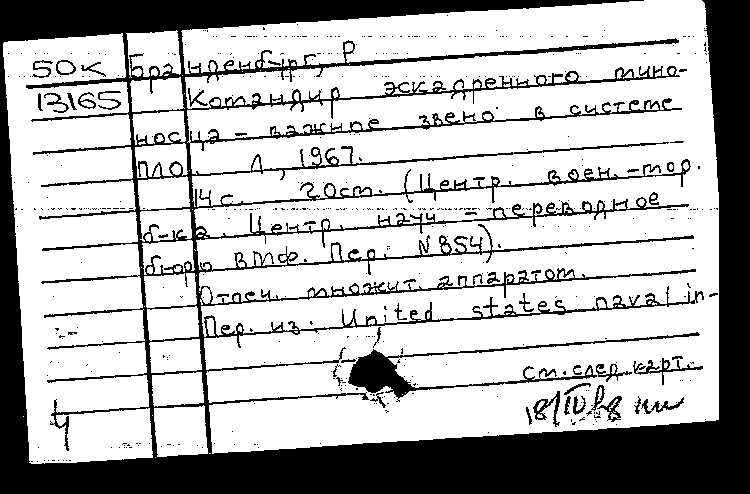 50к Бранденбург, Р
13165 Командир эскадренного мино-
носца – важное звено в системе
ПЛО. Л, 1967.
14 с. 20 см. (Центр. воен.-мор.
б-ка. Центр. науч – переводное
бюро ВМФ. Пер. N 854).
Отпеч. множит. аппаратом.
Пер. из: United states naval in-
См. след. карт.
Ч